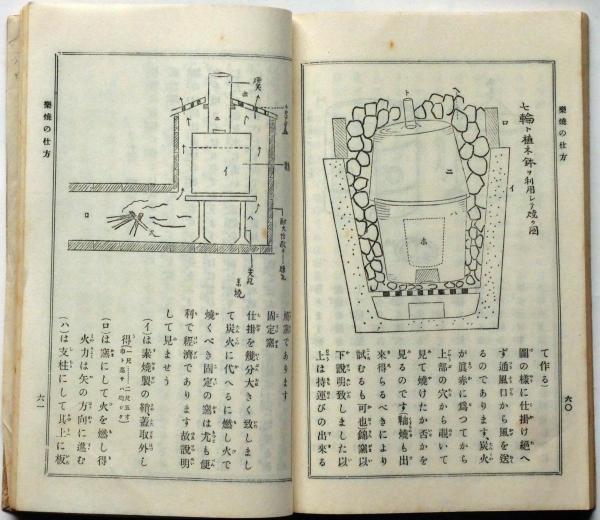 樂燒の仕方
六〇
七輪ト植木鉢ヲ利用シテ燒ク圖
ト
ロ
イ
ニ
ハ
ホ
て作る）
圖の樣に仕掛け絕へ
ず通風口から風を送
るのであります、炭火
が眞赤に爲つてから
上部の穴から覗いて
見て燒けたか否かを
見るのです（釉燒も出
來得らるべきにより
試むるも可也錦窯以
下說明致しました以
上は持運びの出來る
樂燒の仕方
六一
ホ
ニ
イ
ロ
ハ
窯であります
固定窯
仕掛を幾分大きく致しまし
て炭火に代へるに燃し火で
燒くべき固定の窯は尤も便
利で經濟であります故說明
して見ませう
（イ）は素燒製の鞘（蓋取外し
得）
（ロ）は窯にして火を燃し得
火力は矢の方向に進む
（ハ）は支柱にして其上に板